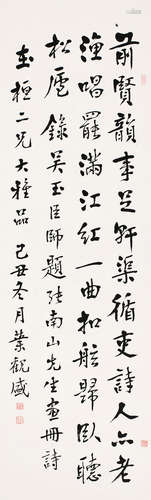 前賢韻事足軒渠循吏詩人亦老
漁唱罷滿江紅一曲扣舷歸臥聽
松廬錄吳玉臣師題張南山先生畫冊詩
桓二兄大雅品己丑冬月葉觀盛